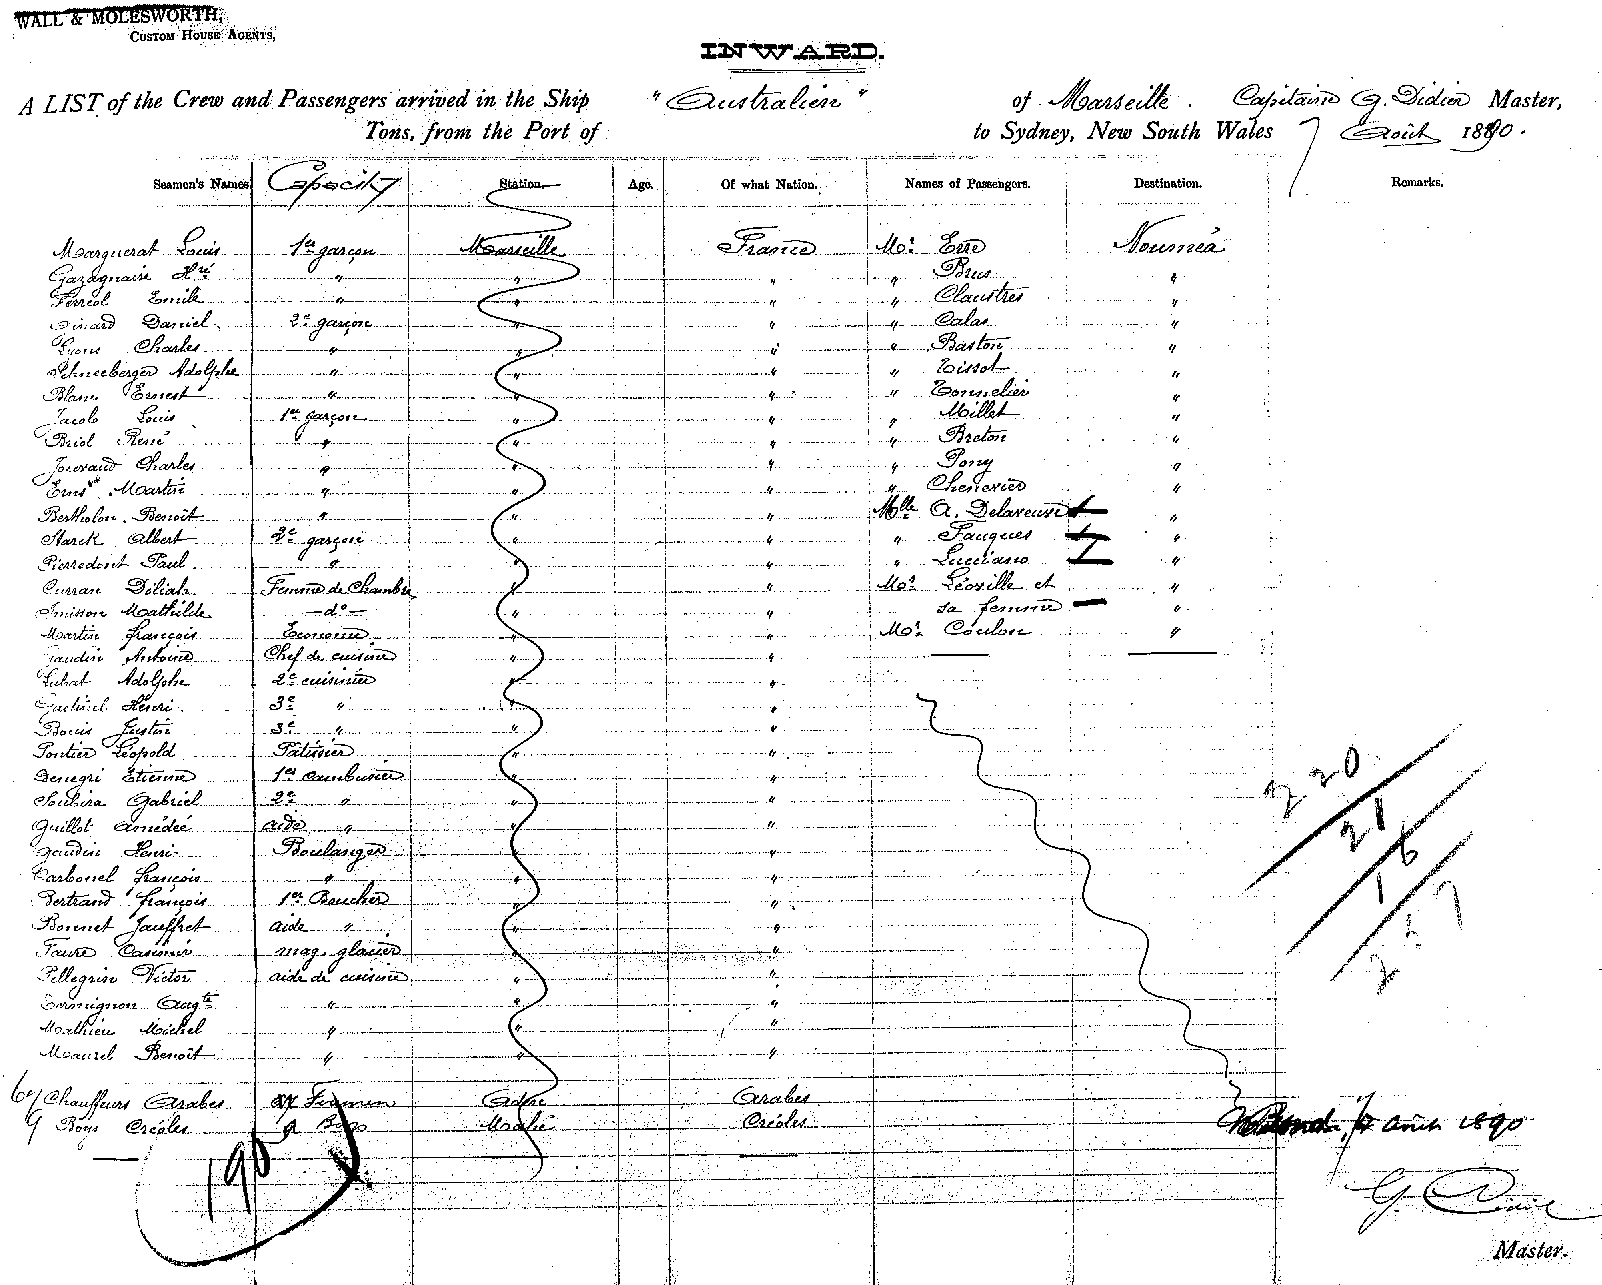 WALL & MOLESWORTH,
CUSTOM HOUSE AGENTS,
INWARD.
A LIST of the Crew and Passengers arrived in the Ship "Australien" of Marseille. Capitaine G. Didier Master,
Tons, from the Port of to Sydney, New South Wales 7 Août 1890.
Seamen's Names. Capacity Station. Age. Of what Nation. Names of Passengers. Destination. Remarks.
Marguerat Louis 1er garçon Marseille France Mr. Erre Nouméa
Gazagnaire Hré " " " " Brus "
Ferréol Emile " " " " Claustres "
Daniel 2e garçon " " " Calas "
Lyons Charles " " " " Baston "
Schneeberger Adolphe " " " " Tissot "
Blanc Ernest " " " " Tonnelier "
Jacob Louis 1er garçon " " " Millet "
Briol René " " " " Breton "
Charles " " " " Pony "
Martin " " " " Chenevier "
Bertholon Benoît " " " Mlle A. "
Starck Albert 2e garçon " " " Fauques "
Pierredont Paul " " " " Lucciano "
Curran Déliah Femme de Chambre " " Mr. Léoville et "
Mathilde - do - " " sa femme "
Martin françois Econome " " Mr. Coulon "
Gaudin Antoine Chef de cuisine " "
Adolphe 2e cuisinier " "
Henri 3e " " "
Bouis Justin 3e " " "
Pontier Léopold Patissier " "
Denegri Etienne 1er cambusier " "
Soubira Gabriel 2e " " "
Guillot Amédée aide " " "
Gaudin Henri Boulanger " "
Carbonel françois " " "
Bertrand françois 1er Boucher " "
Bonnet Jauffret aide " " "
Faure Casimir mag. glacier " "
Pellegrin Victor aide de cuisine " "
Termignon Augte " " "
Mathieu Michel " " "
Maurel Benoît " " "
67 Chauffeurs Arabes Firemen Arabes
9 Boys Créoles 9 Boys Mahé Créoles
190
220
21
16
227
août 1890
G. Didier
Master.